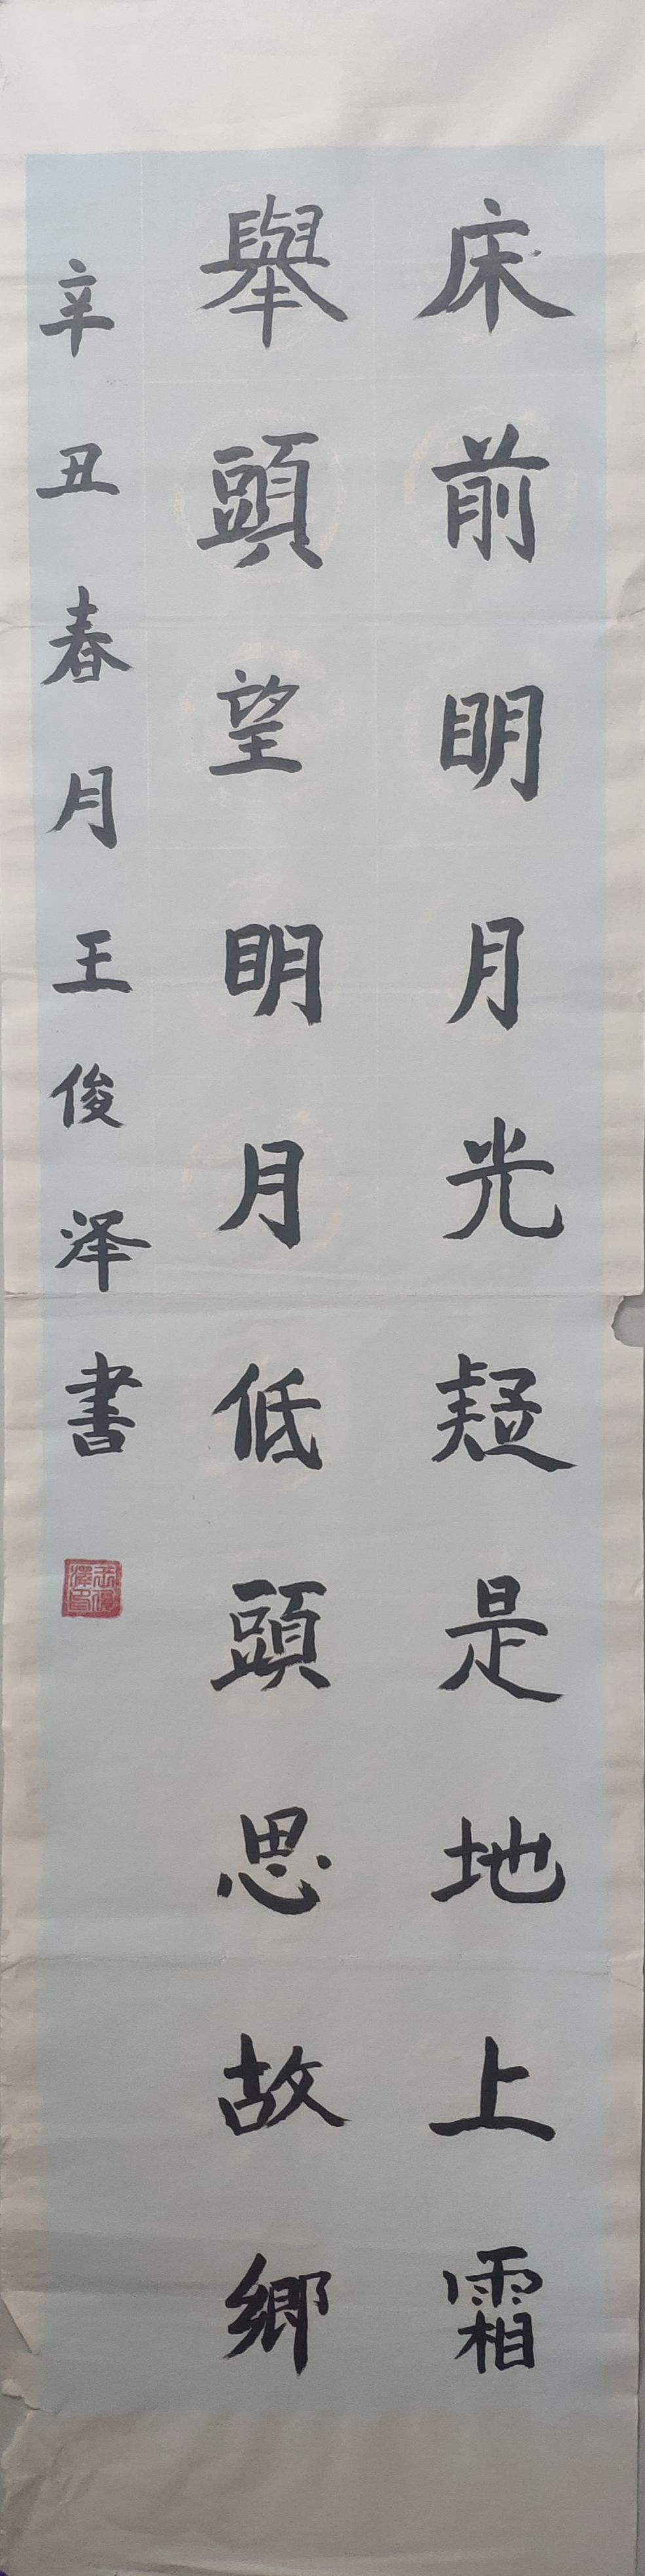 床前明月光疑是地上霜
舉頭望明月低頭思故鄉
辛丑春月王俊泽書